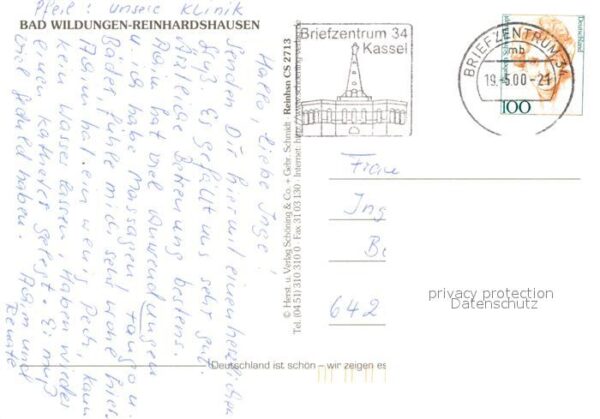 Pfeil: unsere Klinik
BAD WILDUNGEN-REINHARDSHAUSEN
Hallo, liebe Inge!
Senden Dir hiermit einen herzlichen
Gruß. Es gefällt uns sehr gut.
Ärzte, Betreuung bestens.
hat viel Anwendungen
u. ich habe Massagen u.
Bäder, fühle mich sehr wohl hier.
hat ein wenig Pech, kann
kein Wasser lassen, haben wieder
einen Katheter gelegt. Er muß
viel Geduld haben.
und
Renate
© Herst. u. Verlag Schöning & Co. + Gebr. Schmidt · Reinhsn CS 2713
Tel. (04 51) 310 310 0 · Fax 31 03 130 · Internet:
Briefzentrum 34
Kassel
BRIEFZENTRUM 34
mb
19.-5.00-21
Deutschland
100
Frau
Ing
B
642
privacy protection
Datenschutz
Deutschland ist schön – wir zeigen es